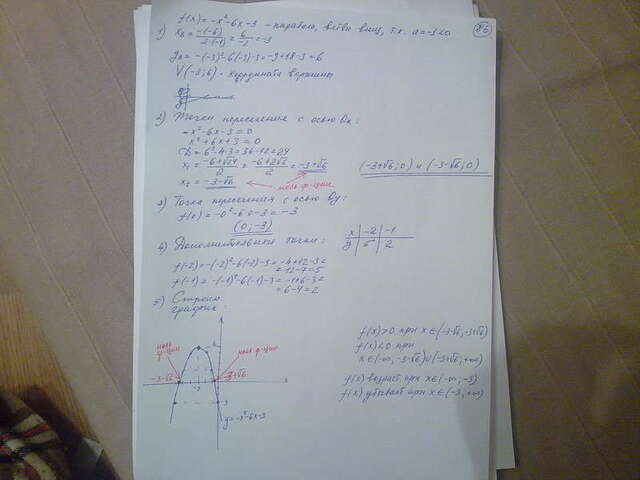 86
f(x) = -x²-6x-3 - парабола, ветви вниз, т.к. a=-1<0
1) x₈ = -(-6)/2·(-1) = 6/-2 = -3
y₈ = -(-3)²-6(-3)-3 = -9+18-3 = 6
V(-3; 6) - координата вершины
2) Точки пересечения с осью Ox:
-x²-6x-3=0
x²+6x+3=0
D = 6²-4·3 = 36-12 = 24
x₁ = -6+√24/2 = -6+2√6/2 = -3+√6
x₂ = -3-√6
ноль ф-ции
(-3+√6; 0) и (-3-√6; 0)
3) Точка пересечения с осью Oy:
f(0) = -0²-6·0-3 = -3
(0; -3)
4) Дополнительные точки:
x | -2 | -1
y | 5 | 2
f(-2) = -(-2)²-6(-2)-3 = -4+12-3 =
= 12-7 = 5
f(-1) = -(-1)²-6(-1)-3 = -1+6-3 =
= 6-4 = 2
5) Строим
график:
ноль
ф-ции
ноль ф-ции
-3-√6
-3+√6
y = -x²-6x-3
f(x)>0 при x∈(-3-√6; -3+√6)
f(x)<0 при
x∈(-∞; -3-√6)∪(-3+√6; +∞)
f(x) возраст при x∈(-∞; -3)
f(x) убывает при x∈(-3; +∞)